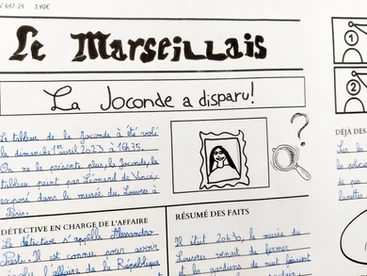 N° 647-24 3,40€
Le Marseillais
La Joconde a disparu!
Le tableau de la Joconde a été volé
le dimanche 1er avril 2023 à 16h35.
On ne le présente plus, la Joconde, le
tableau peint par Léonard de Vinci,
exposé dans le musée du Louvre à
Paris.
DÉTECTIVE EN CHARGE DE L'AFFAIRE
Le détective s'appelle Alessandro
Il est connu pour avoir
l'affaire de la République
RÉSUMÉ DES FAITS
Il était 20h30, le musée du
Louvre venait de fermer
gardiens de nuit faisaient
?
1
2
DÉJÀ DES